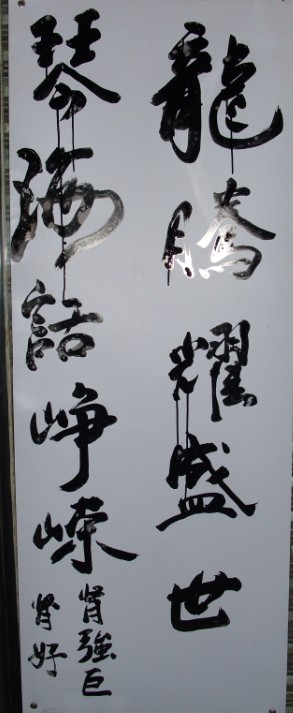 龍騰耀盛世
琴海話崢嶸
腎強巨
腎好